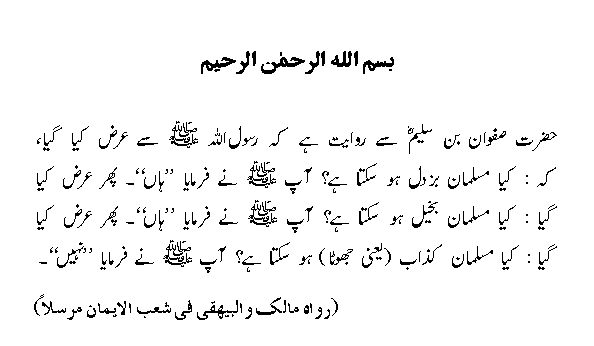 بسم الله الرحمٰن الرحیم
حضرت صفوان بن سلیمؓ سے روایت ہے کہ رسول اللہ ﷺ سے عرض کیا گیا،
کہ : کیا مسلمان بزدل ہو سکتا ہے؟ آپ ﷺ نے فرمایا ”ہاں“۔ پھر عرض کیا
گیا : کیا مسلمان بخیل ہو سکتا ہے؟ آپ ﷺ نے فرمایا ”ہاں“۔ پھر عرض کیا
گیا : کیا مسلمان کذاب (یعنی جھوٹا) ہو سکتا ہے؟ آپ ﷺ نے فرمایا ”نہیں“۔
(رواہ مالک والبیهقی فی شعب الایمان مرسلاً)